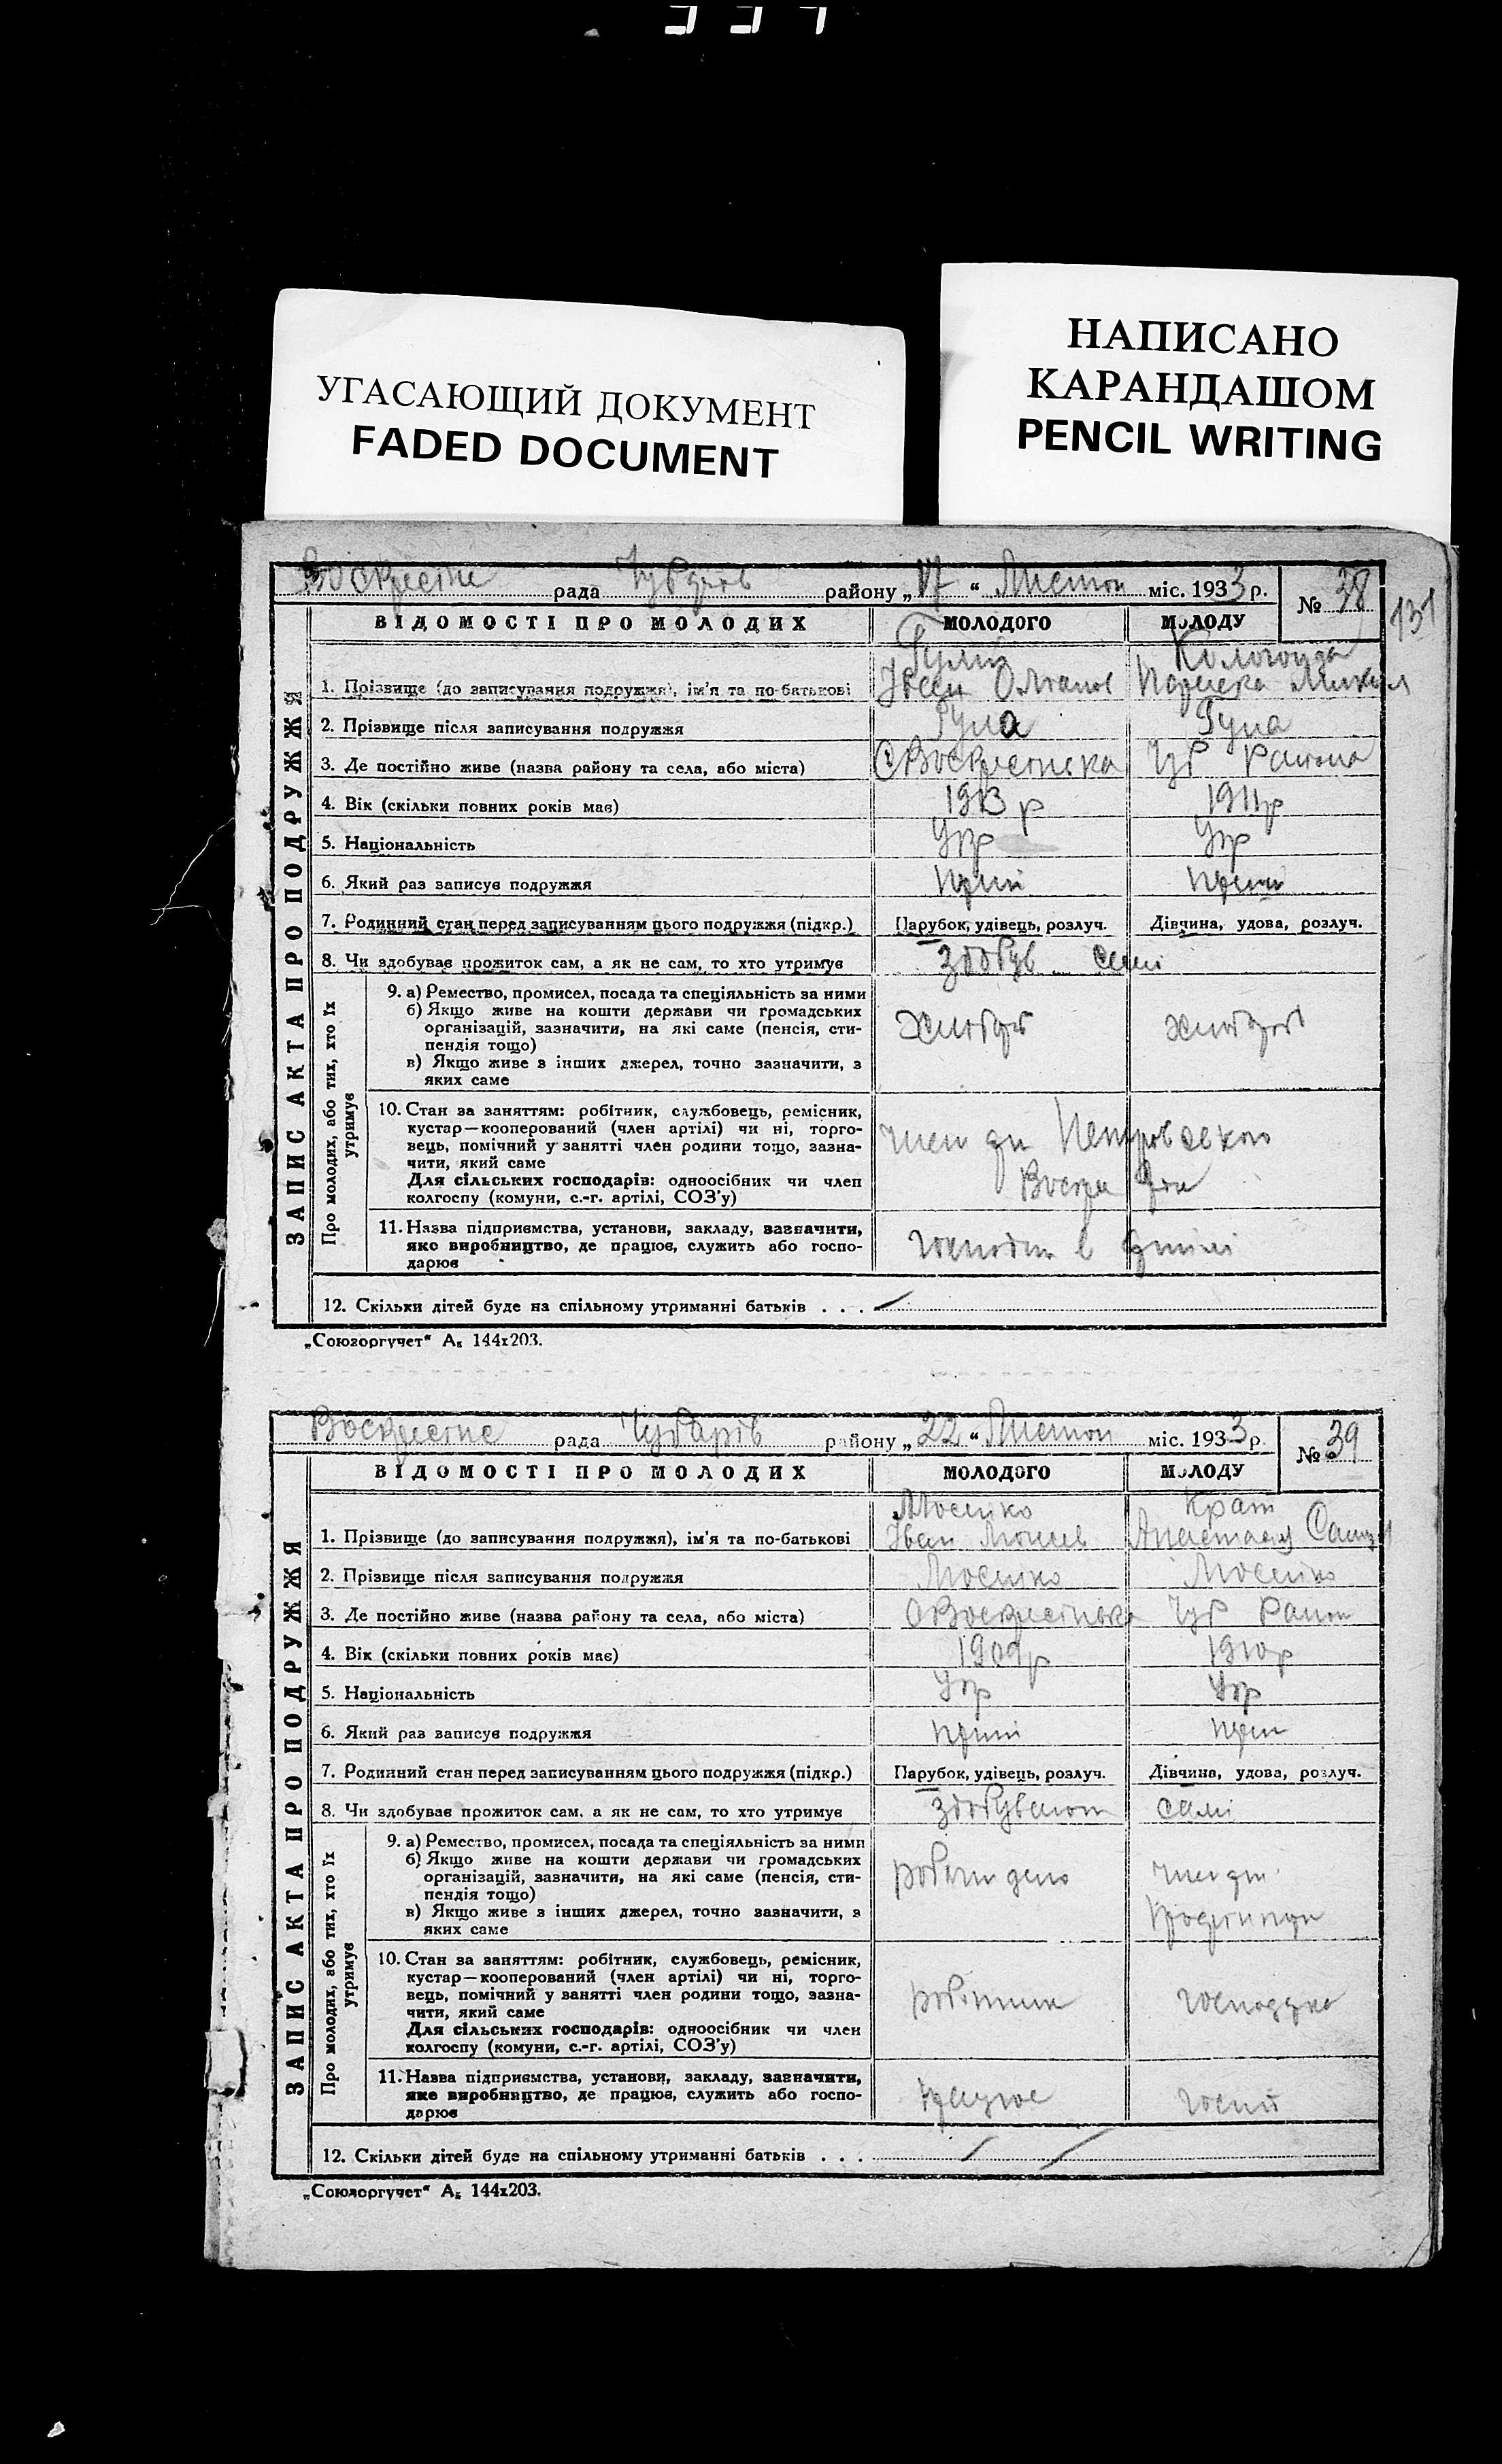 УГАСАЮЩИЙ ДОКУМЕНТ
FADED DOCUMENT
НАПИСАНО
КАРАНДАШОМ
PENCIL WRITING
рада району „17“ Листоп міс. 1933 р. № 38
131
ВІДОМОСТІ ПРО МОЛОДИХ МОЛОДОГО МОЛОДУ
ЗАПИС АКТА ПРО ПОДРУЖЖЯ
1. Прізвище (до записування подружжя), ім'я та по-батькові Іван
2. Прізвище після записування подружжя Гула Гула
3. Де постійно живе (назва району та села, або міста) Чур Района
4. Вік (скільки повних років має) 1913 р 1911 р
5. Національність Укр Укр
6. Який раз записує подружжя
7. Родинний стан перед записуванням цього подружжя (підкр.) Парубок, удівець, розлуч. Дівчина, удова, розлуч.
8. Чи здобуває прожиток сам, а як не сам, то хто утримує здобув самі
Про молодих, або тих, хто їх утримує
9. а) Ремество, промисел, посада та спеціяльність за ними
б) Якщо живе на кошти держави чи громадських
організацій, зазначити, на які саме (пенсія, сти-
пендія тощо)
в) Якщо живе з інших джерел, точно зазначити, з
яких саме
10. Стан за заняттям: робітник, службовець, ремісник,
кустар—кооперований (член артілі) чи ні, торго-
вець, помічний у занятті член родини тощо, зазна-
чити, який саме
Для сільських господарів: одноосібник чи член
колгоспу (комуни, с.-г. артілі, СОЗ'у)
11. Назва підприємства, установи, закладу, зазначити,
яке виробництво, де працює, служить або госпо-
дарює
12. Скільки дітей буде на спільному утриманні батьків . . .
„Союзоргучет“ А₅ 144x203.
рада Чубарів району „22“ Листоп міс. 1933 р. № 39
ВІДОМОСТІ ПРО МОЛОДИХ МОЛОДОГО МОЛОДУ
ЗАПИС АКТА ПРО ПОДРУЖЖЯ
Мосійко Крат
1. Прізвище (до записування подружжя), ім'я та по-батькові Іван
2. Прізвище після записування подружжя Мосійко Мосійко
3. Де постійно живе (назва району та села, або міста) Чур Район
4. Вік (скільки повних років має) 1909 р 1910 р
5. Національність Укр Укр
6. Який раз записує подружжя
7. Родинний стан перед записуванням цього подружжя (підкр.) Парубок, удівець, розлуч. Дівчина, удова, розлуч.
8. Чи здобуває прожиток сам, а як не сам, то хто утримує здобувают самі
Про молодих, або тих, хто їх утримує
9. а) Ремество, промисел, посада та спеціяльність за ними
б) Якщо живе на кошти держави чи громадських
організацій, зазначити, на які саме (пенсія, сти-
пендія тощо)
в) Якщо живе з інших джерел, точно зазначити, з
яких саме
10. Стан за заняттям: робітник, службовець, ремісник,
кустар—кооперований (член артілі) чи ні, торго-
вець, помічний у занятті член родини тощо, зазна-
чити, який саме
Для сільських господарів: одноосібник чи член
колгоспу (комуни, с.-г. артілі, СОЗ'у)
робітник
11. Назва підприємства, установи, закладу, зазначити,
яке виробництво, де працює, служить або госпо-
дарює
працює
12. Скільки дітей буде на спільному утриманні батьків . . .
„Союзоргучет“ А₅ 144x203.